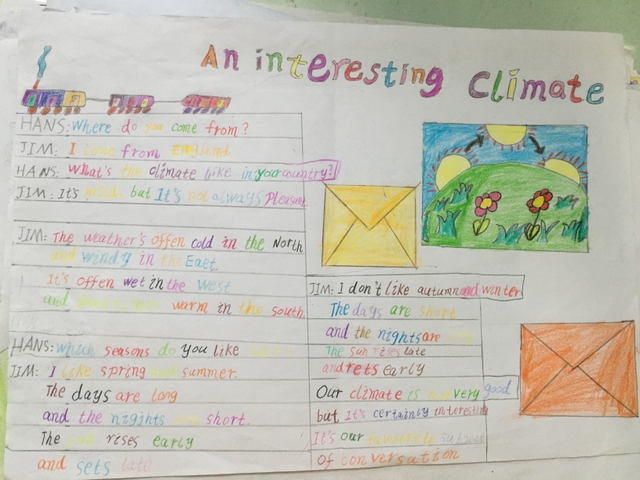 An interesting climate
HANS: Where do you come from?
JIM: I come from England
HANS: What's the climate like in your country?
JIM: It's mild but It's not always Pleasant
JIM: The weather's offen cold in the North
and windy in the East.
It's offen wet in the West
and warm in the south
HANS: Which seasons do you like
JIM: I like spring and summer.
The days are long
and the nights short.
The rises early
and sets late
JIM: I don't like autumn and winter
The days are short
and the nights are
The sun rises late
and rets early
Our climate is very good
but It's certainly interesting
It's our favourite
of conversation